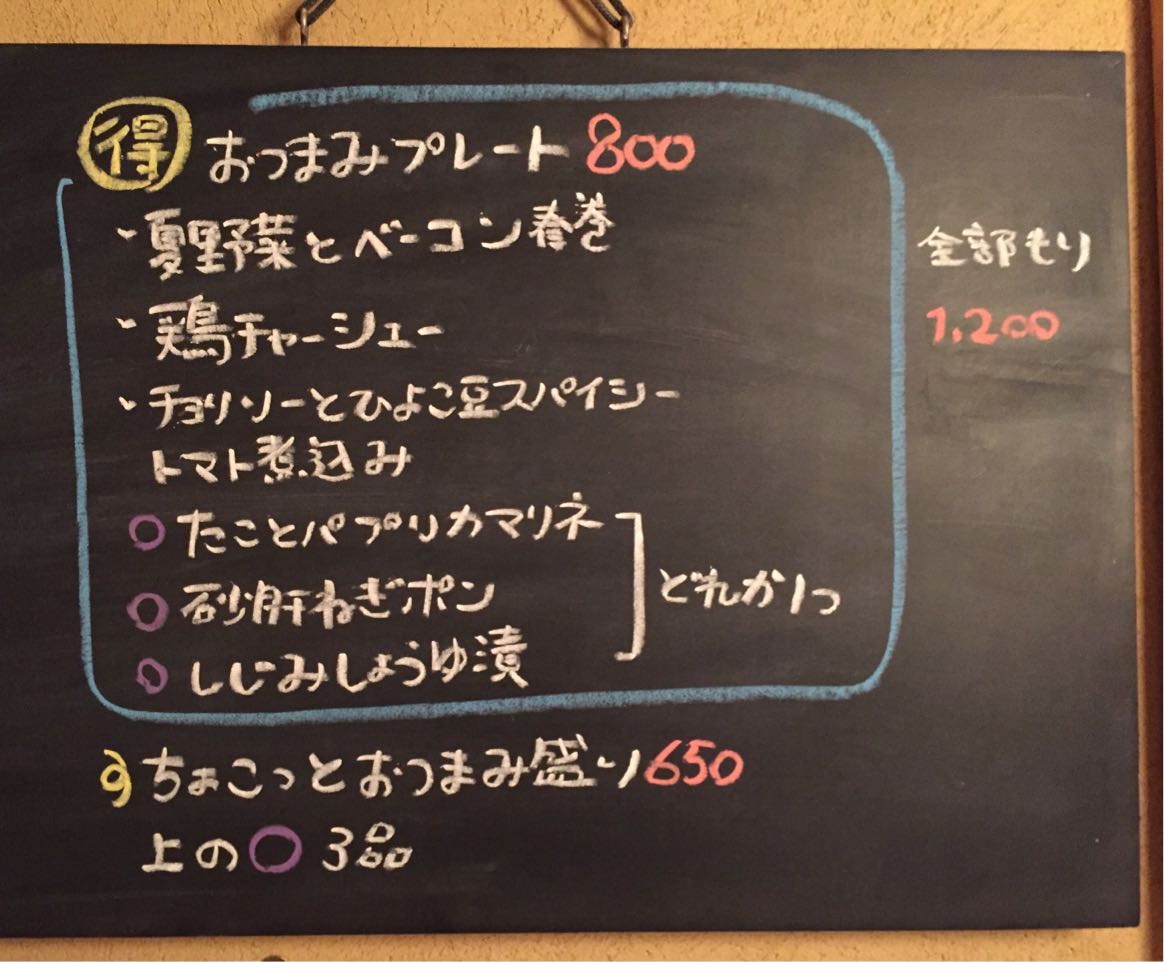 得 おつまみプレート 800
・夏野菜とベーコン春巻
・鶏チャーシュー
・チョリソーとひよこ豆スパイシー
トマト煮込み
○たことパプリカマリネ
○砂肝ねぎポン
○しじみしょうゆ漬
どれか1つ
全部もり
1,200
ちょこっとおつまみ盛り 650
上の○3品